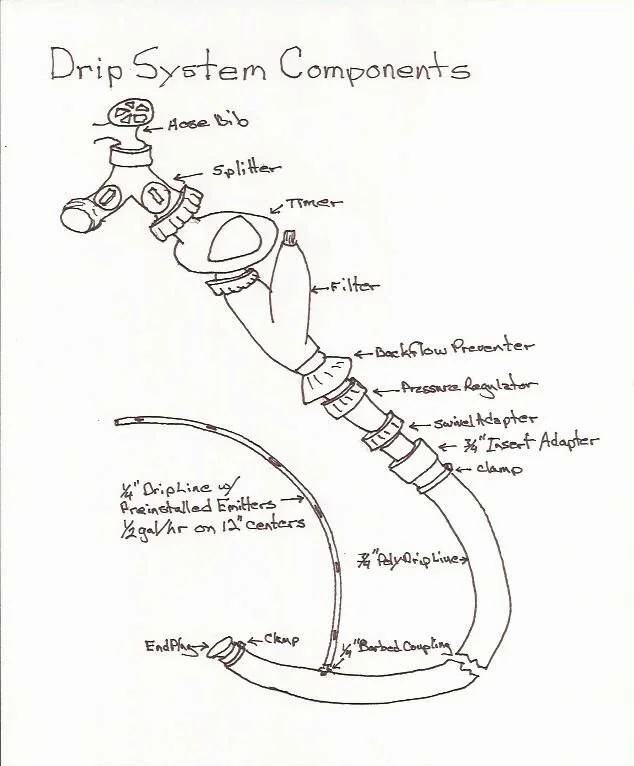 Drip System Components
Hose Bib
Splitter
Timer
Filter
Backflow Preventer
Pressure Regulator
Swivel Adapter
3/4" Insert Adapter
Clamp
1/4" Drip Line w/
Preinstalled Emitters
1/2 gal/hr on 12" centers
3/4" Poly Drip Line
End Plug
Clamp
1/4" Barbed Coupling